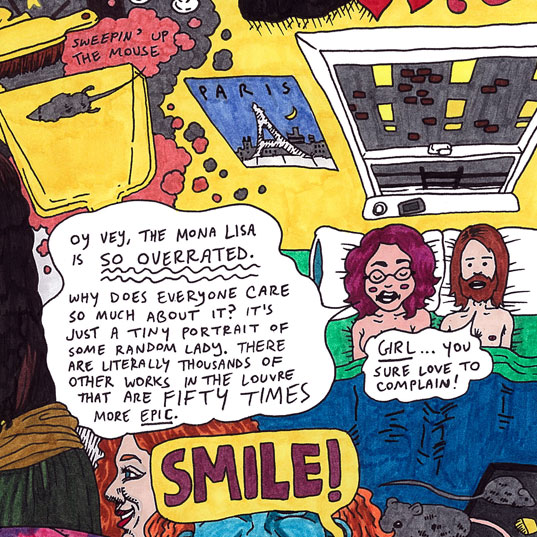 SWEEPIN' UP
THE MOUSE
PARIS
OY VEY, THE MONA LISA
IS SO OVERRATED.
WHY DOES EVERYONE CARE
SO MUCH ABOUT IT? IT'S
JUST A TINY PORTRAIT OF
SOME RANDOM LADY. THERE
ARE LITERALLY THOUSANDS OF
OTHER WORKS IN THE LOUVRE
THAT ARE FIFTY TIMES
MORE EPIC.
GIRL... YOU
SURE LOVE TO
COMPLAIN!
SMILE!